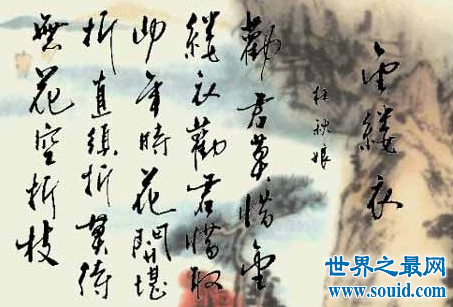 金缕衣
杜秋娘
勸君莫惜金
缕衣勸君惜取
少年時花開堪
折直須折莫待
無花空折枝
世界之最网
www.souid.com